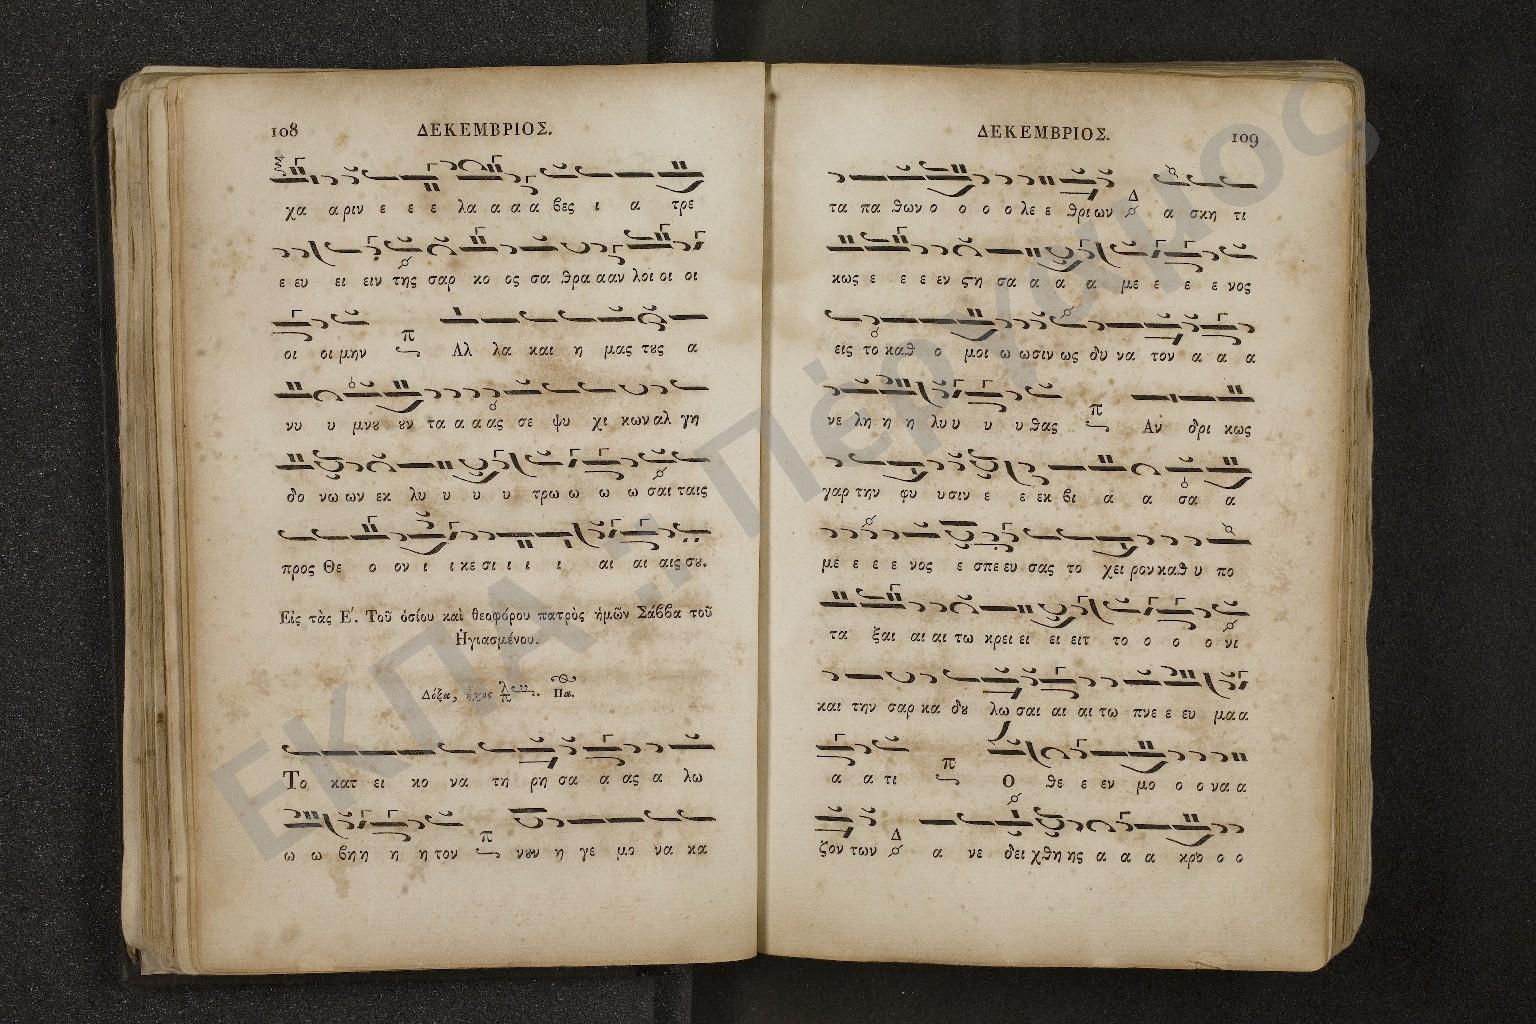 108 ΔΕΚΕΜΒΡΙΟΣ.
χα α ριν ε ε ε λα α α α βες ι α τρε
ε ευ ει ειν της σαρ κο ος σα θρα α αν λοι οι οι
οι οι μην π Αλ λα και η μας τȣς α
νυ υ μνȣ ȣν τα α α ας σε ψυ χι κων αλ γη
δο νω ων εκ λυ υ υ υ τρω ω ω ω σαι ταις
προς Θε ο ον ι ι κε σι ι ι ι αι αι αις σȣ.
Εἰς τὰς Ε΄. Τοῦ ὁσίου καὶ θεοφόρου πατρὸς ἡμῶν Σάββα τοῦ
Ἡγιασμένου.
Δόξα, ἦχος λ π Πα.
Το κατ ει κο να τη ρη σα α ας α λω
ω ω βη η η η τον π νȣν η γε μο να κα
109 ΔΕΚΕΜΒΡΙΟΣ.
τα πα θων ο ο ο ο λε ε θρι ων Δ α σκη τι
κως ε ε ε εν ςη σα α α α με ε ε ε νος
εις το καθ ο μοι ω ω σιν ως δυ να τον α α α
νε λη η η λυ υ υ υ θας π Αν δρι κως
γαρ την φυ υ σιν ε ε εκ βι α α σα α
με ε ε ε νος ε σπε ευ σας το χει ρον καθ υ πο
τα ξαι αι αι τω κρει ει ει ειτ το ο ο ο νι
και την σαρ κα δȣ λω σαι αι αι τω πνε ε ευ μα α
α α τι π Ο θε ε εν μο ο ο να α
ζον των Δ α νε δει χθη ης α α α κρο ο ο
ΕΚΠΑ :: Πέργαμος